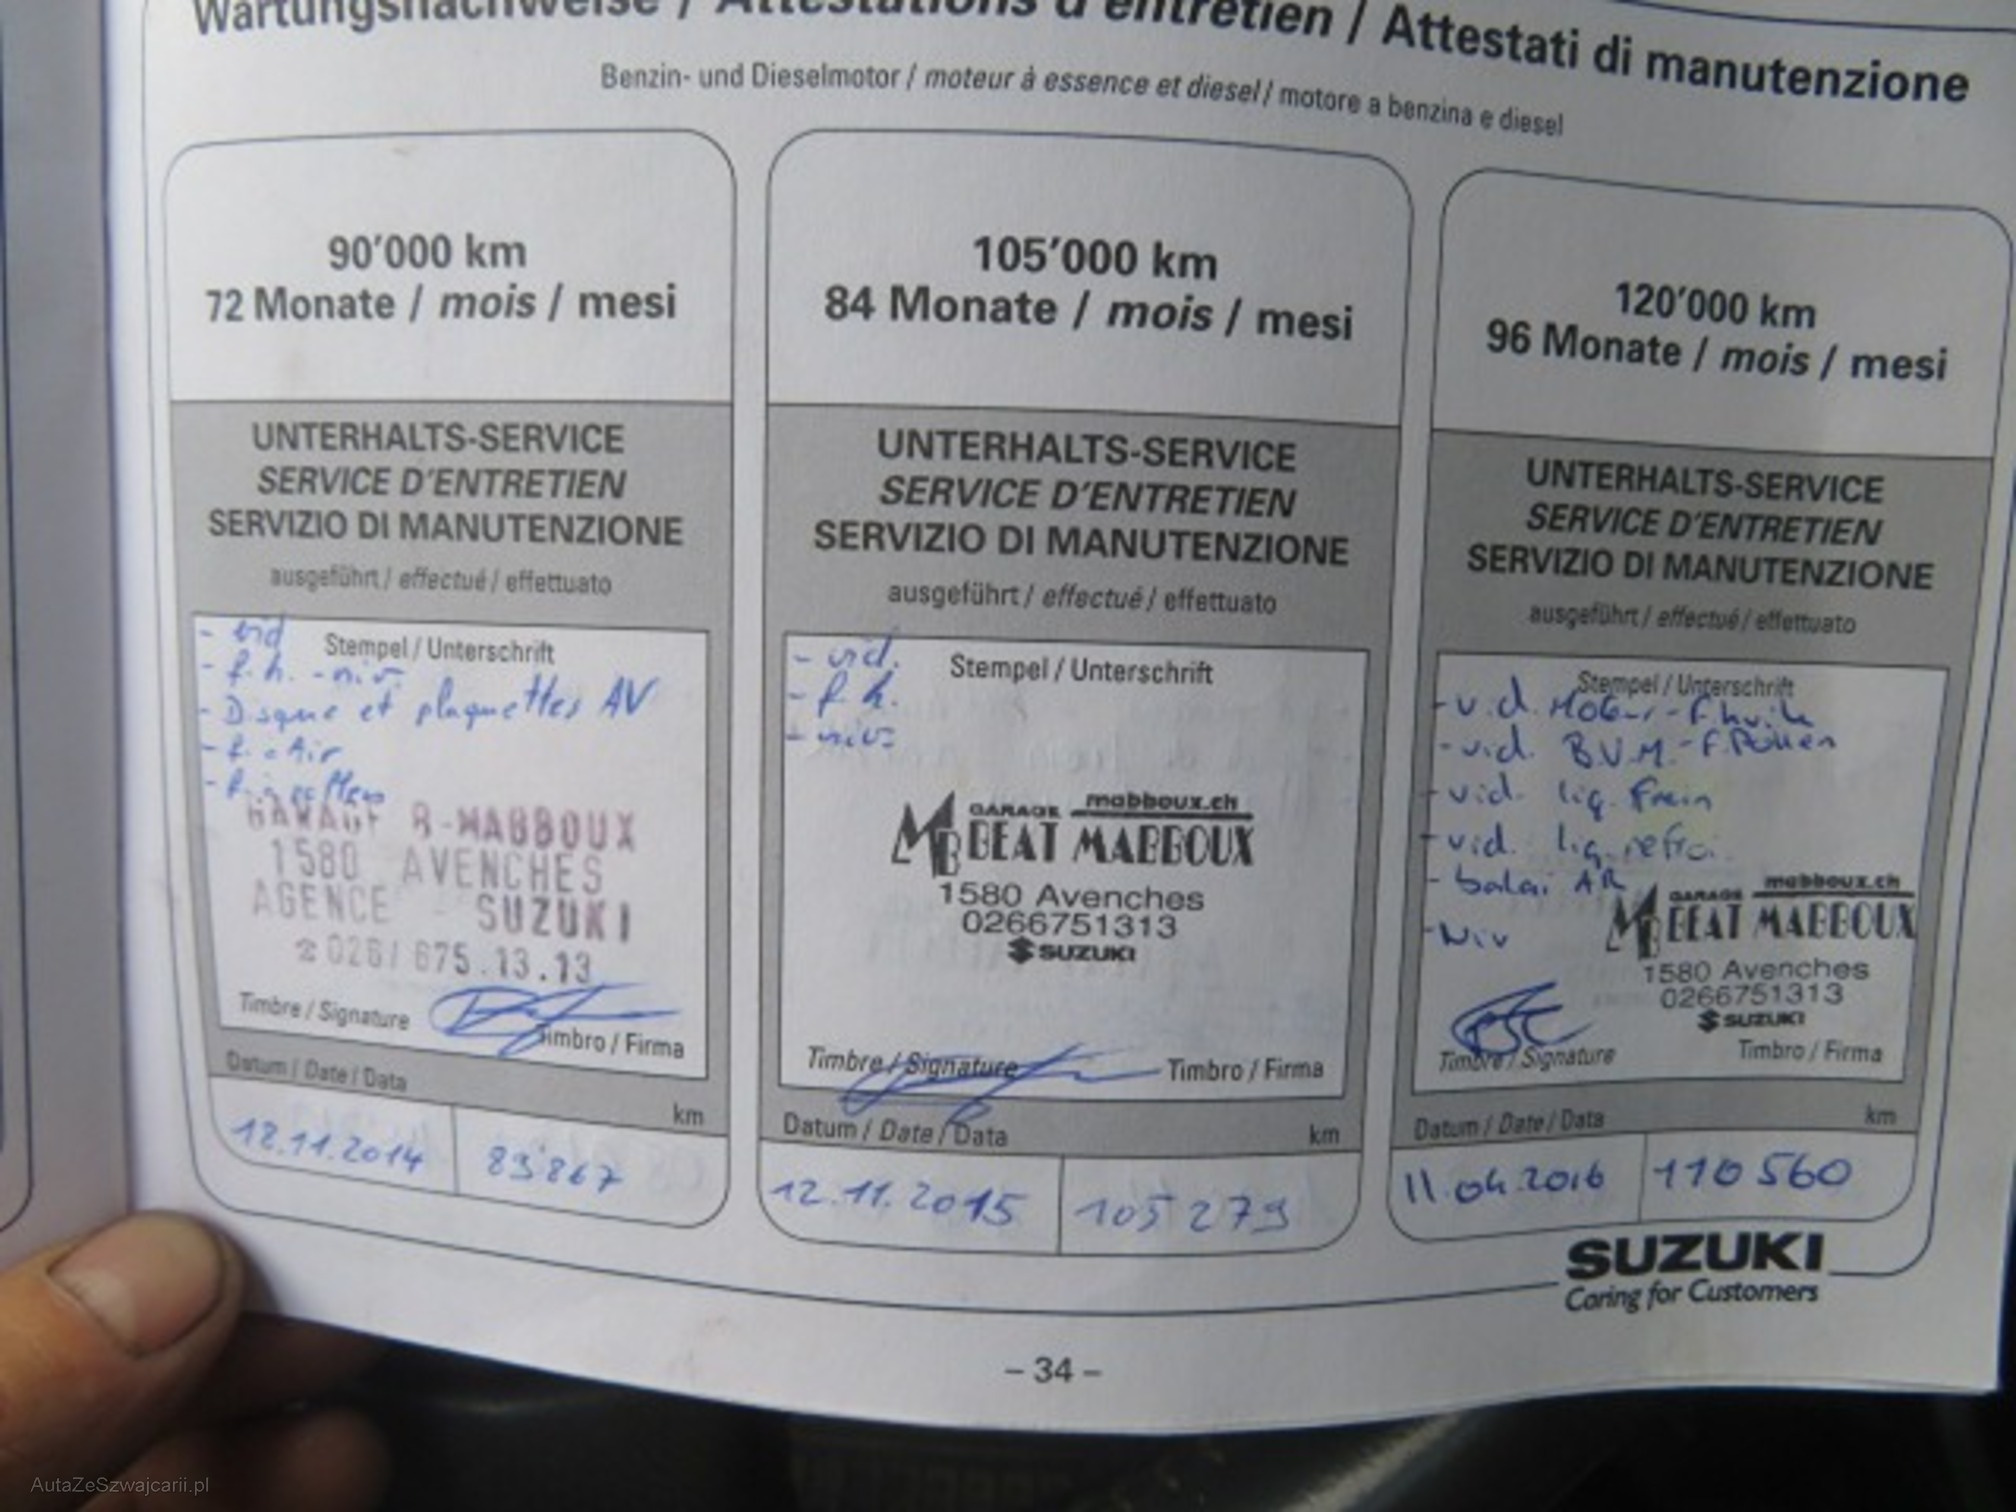 Wartungsnachweise / Attestations d'entretien / Attestati di manutenzione
Benzin- und Dieselmotor / moteur à essence et diesel / motore a benzina e diesel
90'000 km
72 Monate / mois / mesi
UNTERHALTS-SERVICE
SERVICE D'ENTRETIEN
SERVIZIO DI MANUTENZIONE
ausgeführt / effectué / effettuato
- vid
Stempel / Unterschrift
- f.h. - niv.
- Disque et plaquettes AV
- f. à Air
GARAGE B-MABBOUX
1580 AVENCHES
AGENCE SUZUKI
☎ 026/ 675.13.13
Timbre / Signature
Timbro / Firma
Datum / Date / Data
km
12.11.2014
89'867
105'000 km
84 Monate / mois / mesi
UNTERHALTS-SERVICE
SERVICE D'ENTRETIEN
SERVIZIO DI MANUTENZIONE
ausgeführt / effectué / effettuato
- vid.
Stempel / Unterschrift
- f.h.
- niv.
GARAGE mabboux.ch
MB BEAT MABBOUX
1580 Avenches
0266751313
SUZUKI
Timbre / Signature
Timbro / Firma
Datum / Date / Data
km
12.11.2015
105 279
120'000 km
96 Monate / mois / mesi
UNTERHALTS-SERVICE
SERVICE D'ENTRETIEN
SERVIZIO DI MANUTENZIONE
ausgeführt / effectué / effettuato
Stempel / Unterschrift
- vid. Moteur - F. huile
- vid. B.V.M. - F. Pollen
- vid. liq. frein
- vid. liq. refroi.
- balai AR
- Niv
GARAGE mabboux.ch
MB BEAT MABBOUX
1580 Avenches
0266751313
SUZUKI
Timbre / Signature
Timbro / Firma
Datum / Date / Data
km
11.04.2016
110 560
SUZUKI
Caring for Customers
– 34 –
AutaZeSzwajcarii.pl